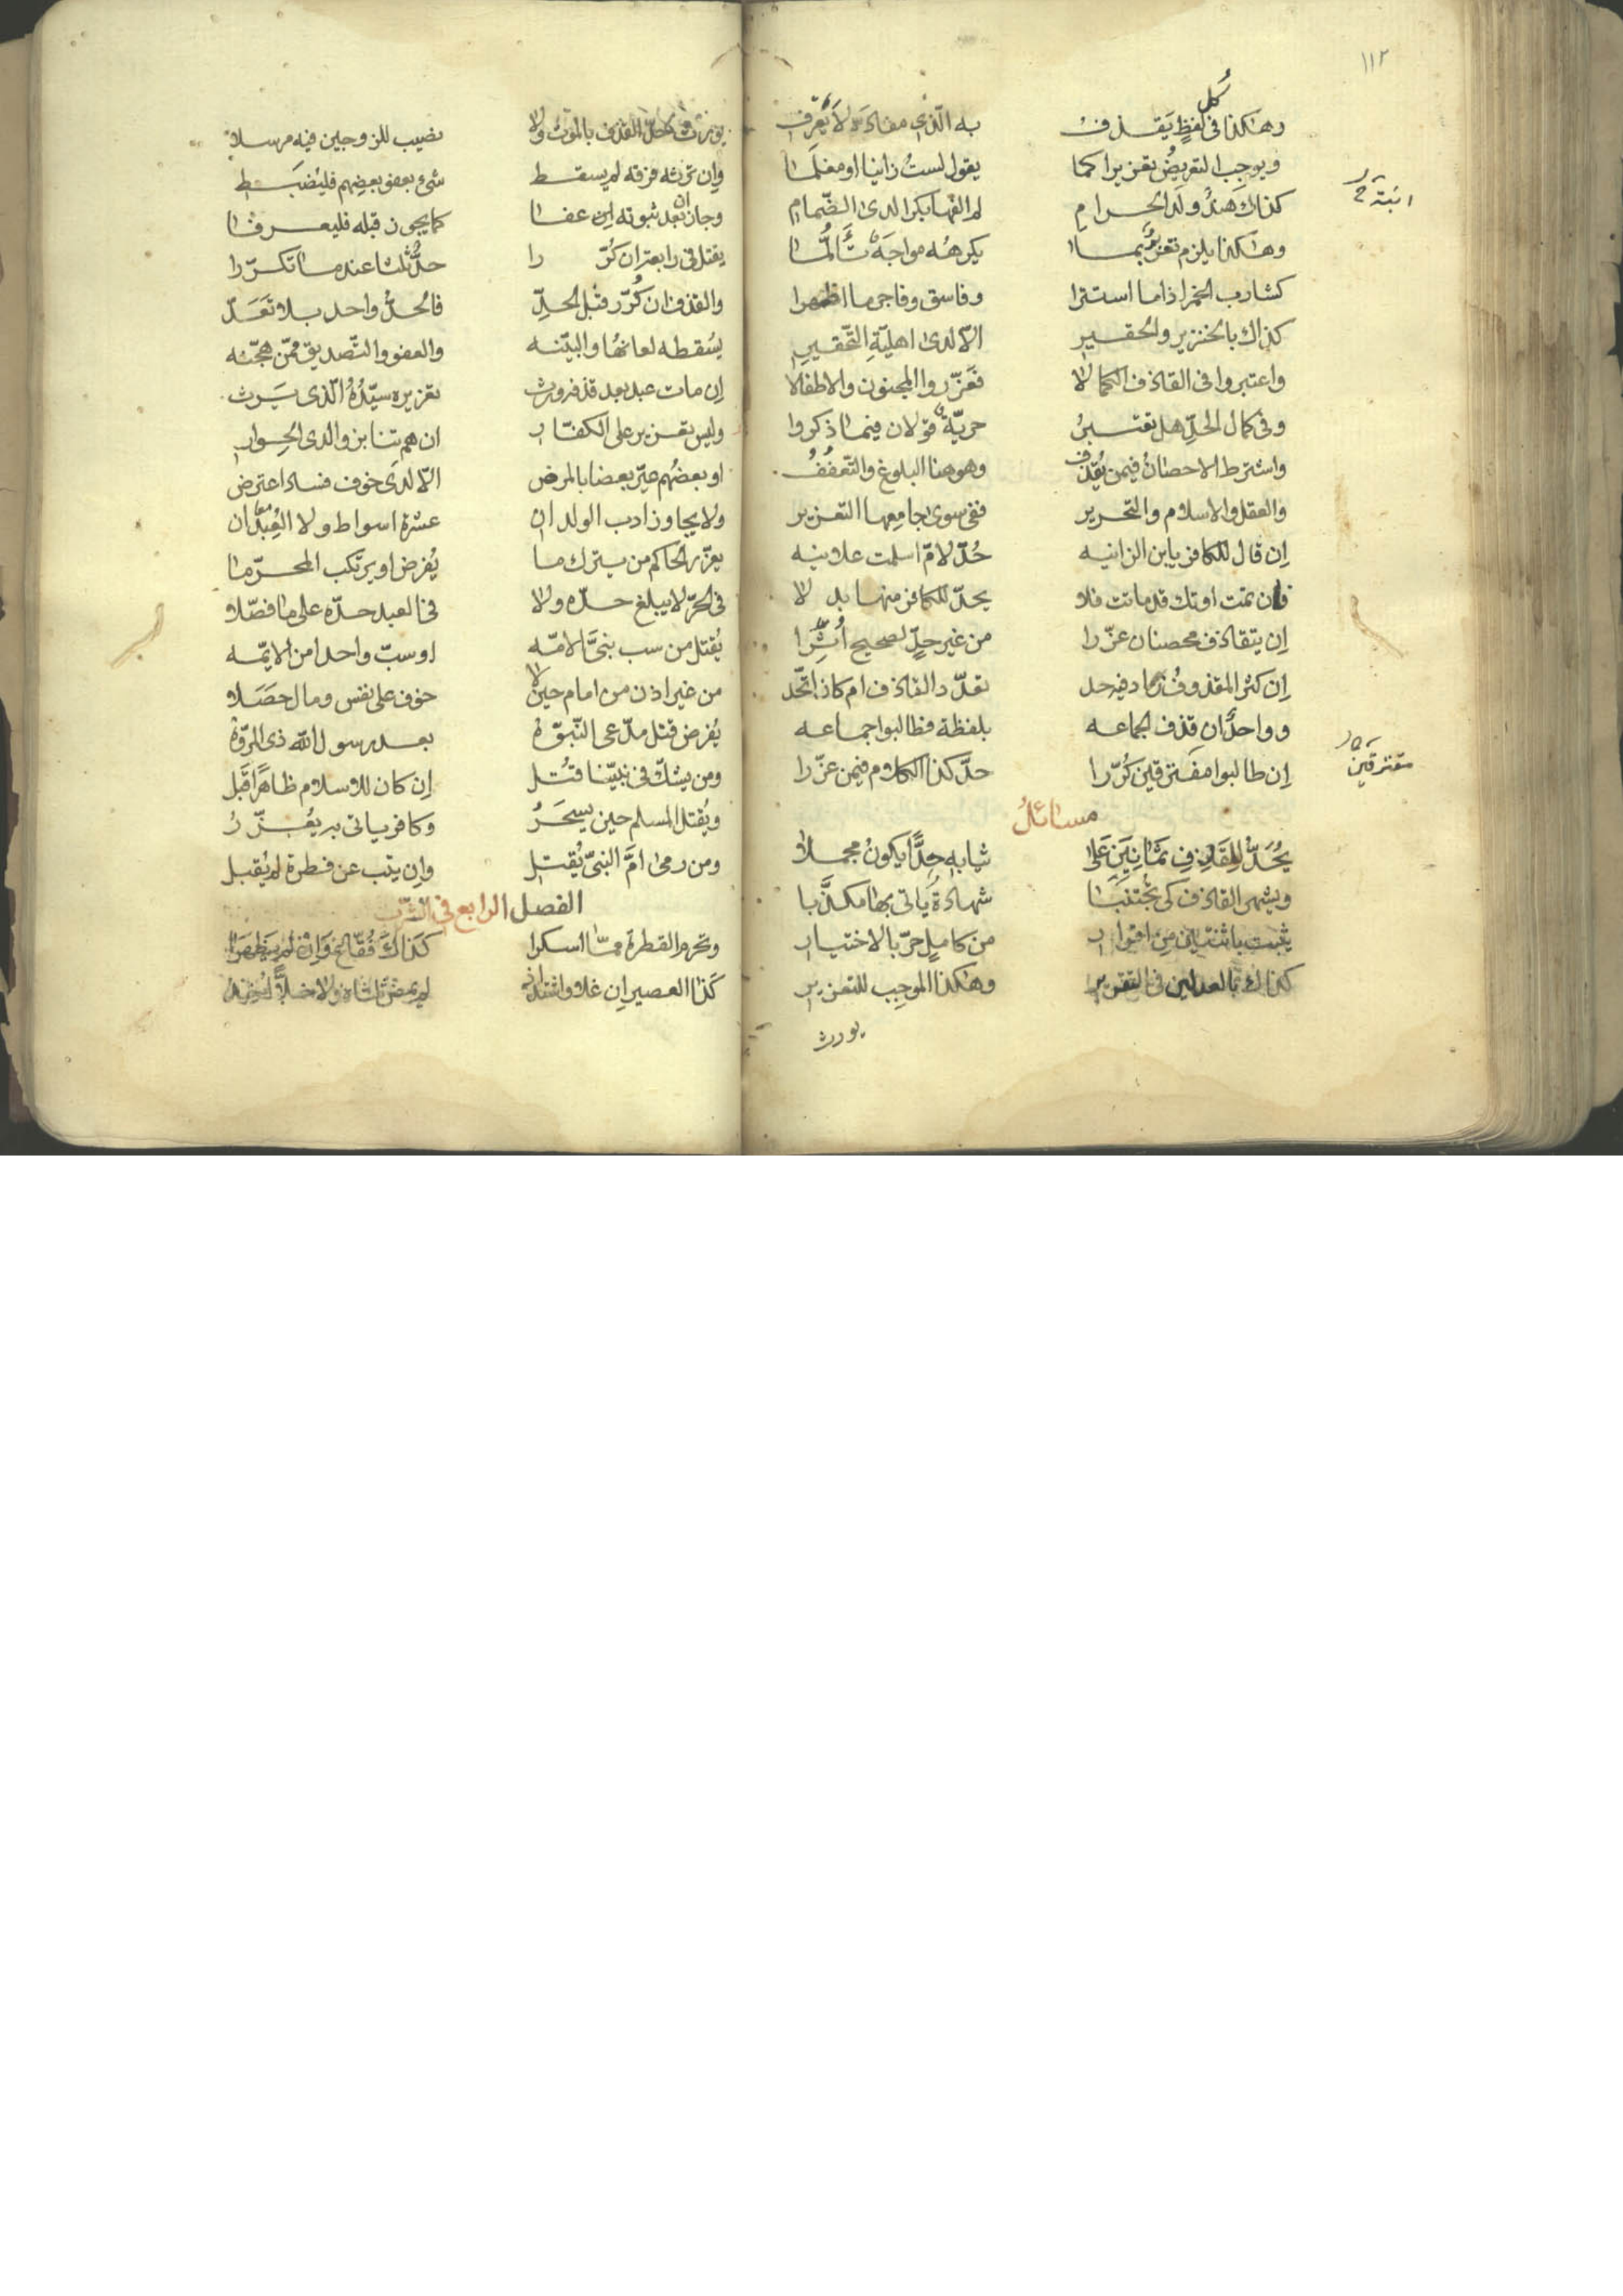 ١١٢
كل
وهكذا في لفظ يقذف به الذي مفاده لا يعرف
ويوجب التعريض تعزيرا كما يقول لست زانيا او معلما
كذاك هند ولد الحرام لم الفها بكرا لدى الضمام
وهكذا يلزم تعزير بما يكرهه مواجه تألما
كشارب الخمر اذا ما استترا وفاسق وفاجر ما اظهرا
كذاك بالخنزير والحقير الا لدى اهلية التحقير
واعتبروا في القاذف الكمالا فعزروا المجنون والاطفالا
وفي كمال الحد هل تعتبر حرية قولان فيما ذكروا
واشترط الاحصان فيمن يقذف وهو هنا البلوغ والتعفف
والعقل والاسلام والتحرير ففي سوى جامعها التعزير
إن قال للكافر يابن الزانيه حد لام اسلمت علانيه
فان تمت او تك قد ماتت فلا يحد للكافر منها بدلا
إن يتقاذف محصنان عزرا من غير حد لصحيح أثرا
إن كثر المقذوف زاد فيه حد تعدد القاذف ام كان اتحد
وواحد ان قذف الجماعه بلفظة فطالبوا جماعه
إن طالبوا مفترقين كررا حد كذا الكلام فيمن عزرا
متفرقين
مسائل
يحد للقاذف ثمانين على ثيابه حدا يكون مجملا
ويشهر القاذف كي يجتنبا شهادة ياتي بها مكذبا
يثبت باثنتين من اقرار من كامل حر بالاختيار
كذاك بالعدلين في التقرير وهكذا الموجب للتعزير
يورث
يورث كل القذف بالموت ولا نصيب للزوجين فيه مرسلا
وإن ترثه فرقه لم يسقط شيء بعفو بعضهم فليضبط
وجاز بعد ثبوته إن عفا كما يجوز قبله فليعرفا
يقتل في رابعة ان كررا حد ثلثا عندما تكررا
والقذف ان كرر قبل الحد فالحد واحد بلا تعد
يسقطه لعانها والبينه والعفو والتصديق ممن هجنه
إن مات عبد بعد قذف ورث تعزيره سيده الذي يرث
وليس تعزير على الكفار ان هم تنابزوا لدى الحوار
او بعضهم عير بعضا بالمرض الا لدى خوف فساد اعترض
ولا يجاوز ادب الولدان عشرة اسواط ولا العبدان
يعزر الحاكم من يترك ما يفرض او يرتكب المحرما
في الحر لا يبلغ حده ولا في العبد حده على ما فصلا
يقتل من سب نبي الامه او سب واحدا من الايمه
من غير اذن من امام حين لا خوف على نفس ومال حصلا
يفرض قتل مدعي النبوة بعد رسول الله ذي المروة
ومن يشك في نبينا قتل إن كان للاسلام ظاهرا قبل
ويقتل المسلم حين يسحر وكافر ياتي به يعزر
ومن رمى ام النبي يقتل وإن يتب عن فطرة لم يقبل
الفصل الرابع في الشرب
وتحرم القطرة مما اسكرا كذاك فقاع وإن لم يظهرا
كذا العصير إن غلا واشتد اذ لم يمض ثلثاه ولا خلا